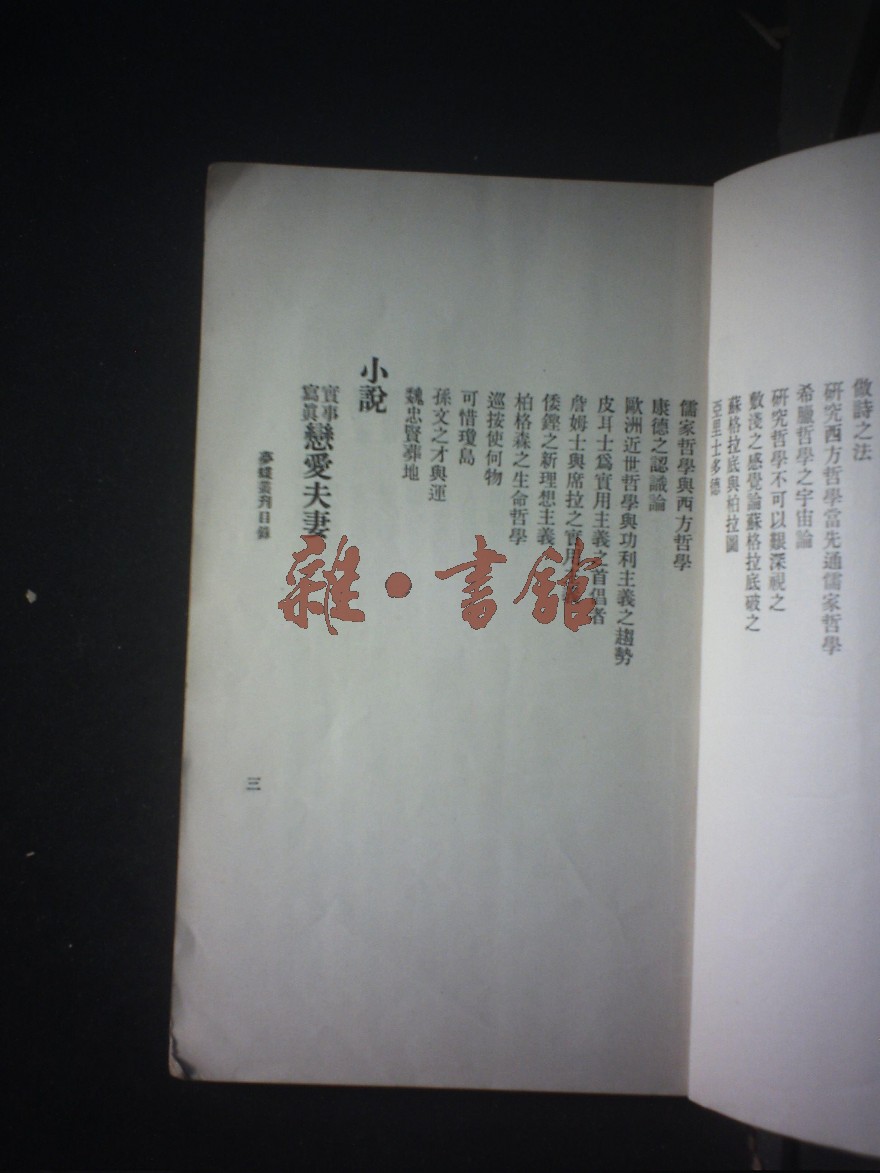 做詩之法
研究西方哲學當先通儒家哲學
希臘哲學之宇宙論
研究哲學不可以艱深視之
敷淺之感覺論蘇格拉底破之
蘇格拉底與柏拉圖
亞里士多德
儒家哲學與西方哲學
康德之認識論
歐洲近世哲學與功利主義之趨勢
皮耳士爲實用主義之首倡者
詹姆士與席拉之實用
倭鏗之新理想主義
柏格森之生命哲學
巡按使何物
可惜瓊島
孫文之才與運
魏忠賢葬地
小說
實事寫眞戀愛夫妻
夢蝶叢刋目錄
三
雜·書館